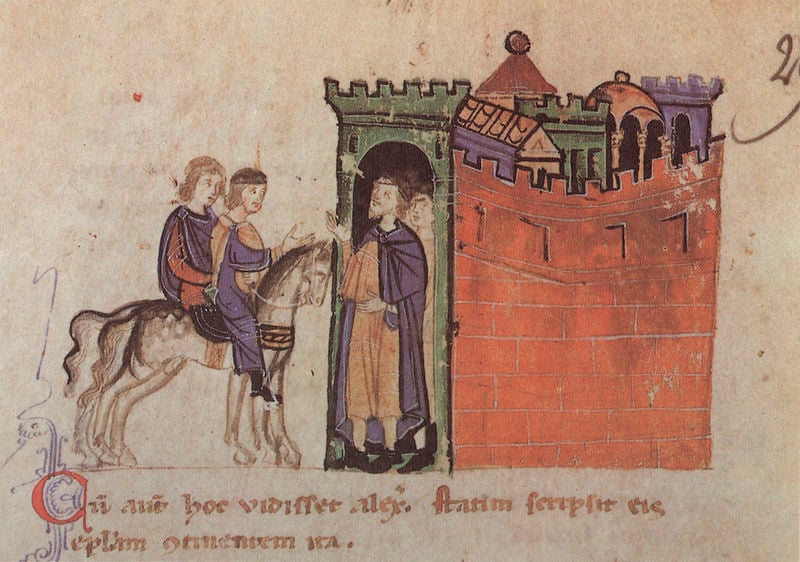 Cū autē hoc vidisset alex̄. statim scripsit eis
eplām ꝯtinentem ita.